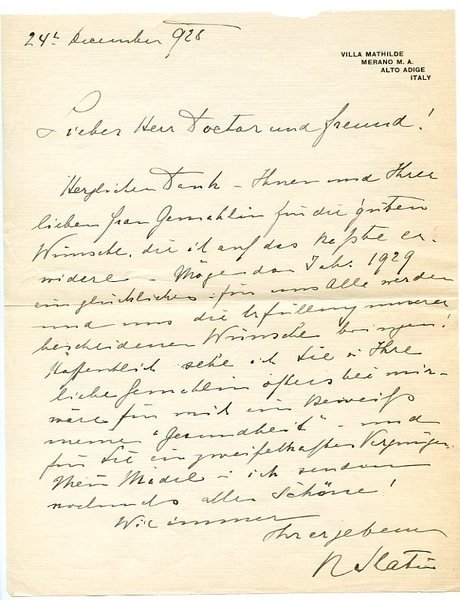 24t December 1928
VILLA MATHILDE
MERANO M. A.
ALTO ADIGE
ITALY
Lieber Herr Doctor und Freund!
Herzlichen Dank – Ihnen und Ihrer
lieben Frau Gemahlin für die guten
Wünsche, die ich auf das beste er-
widere – Möge das Jahr 1929
ein glückliches für uns Alle werden
und uns die Erfüllung unserer
bescheidenen Wünsche bringen!
Hoffentlich sehe ich Sie u Ihre
liebe Gemahlin öfters bei mir –
wäre für mich ein Beweiss
meiner "Gesundheit" – und
für Sie ein zweifelhaftes Vergnügen
Mein Madel u ich senden
nochmals alles Schöne!
Wie immer
Ihr ergebener
R Slatin